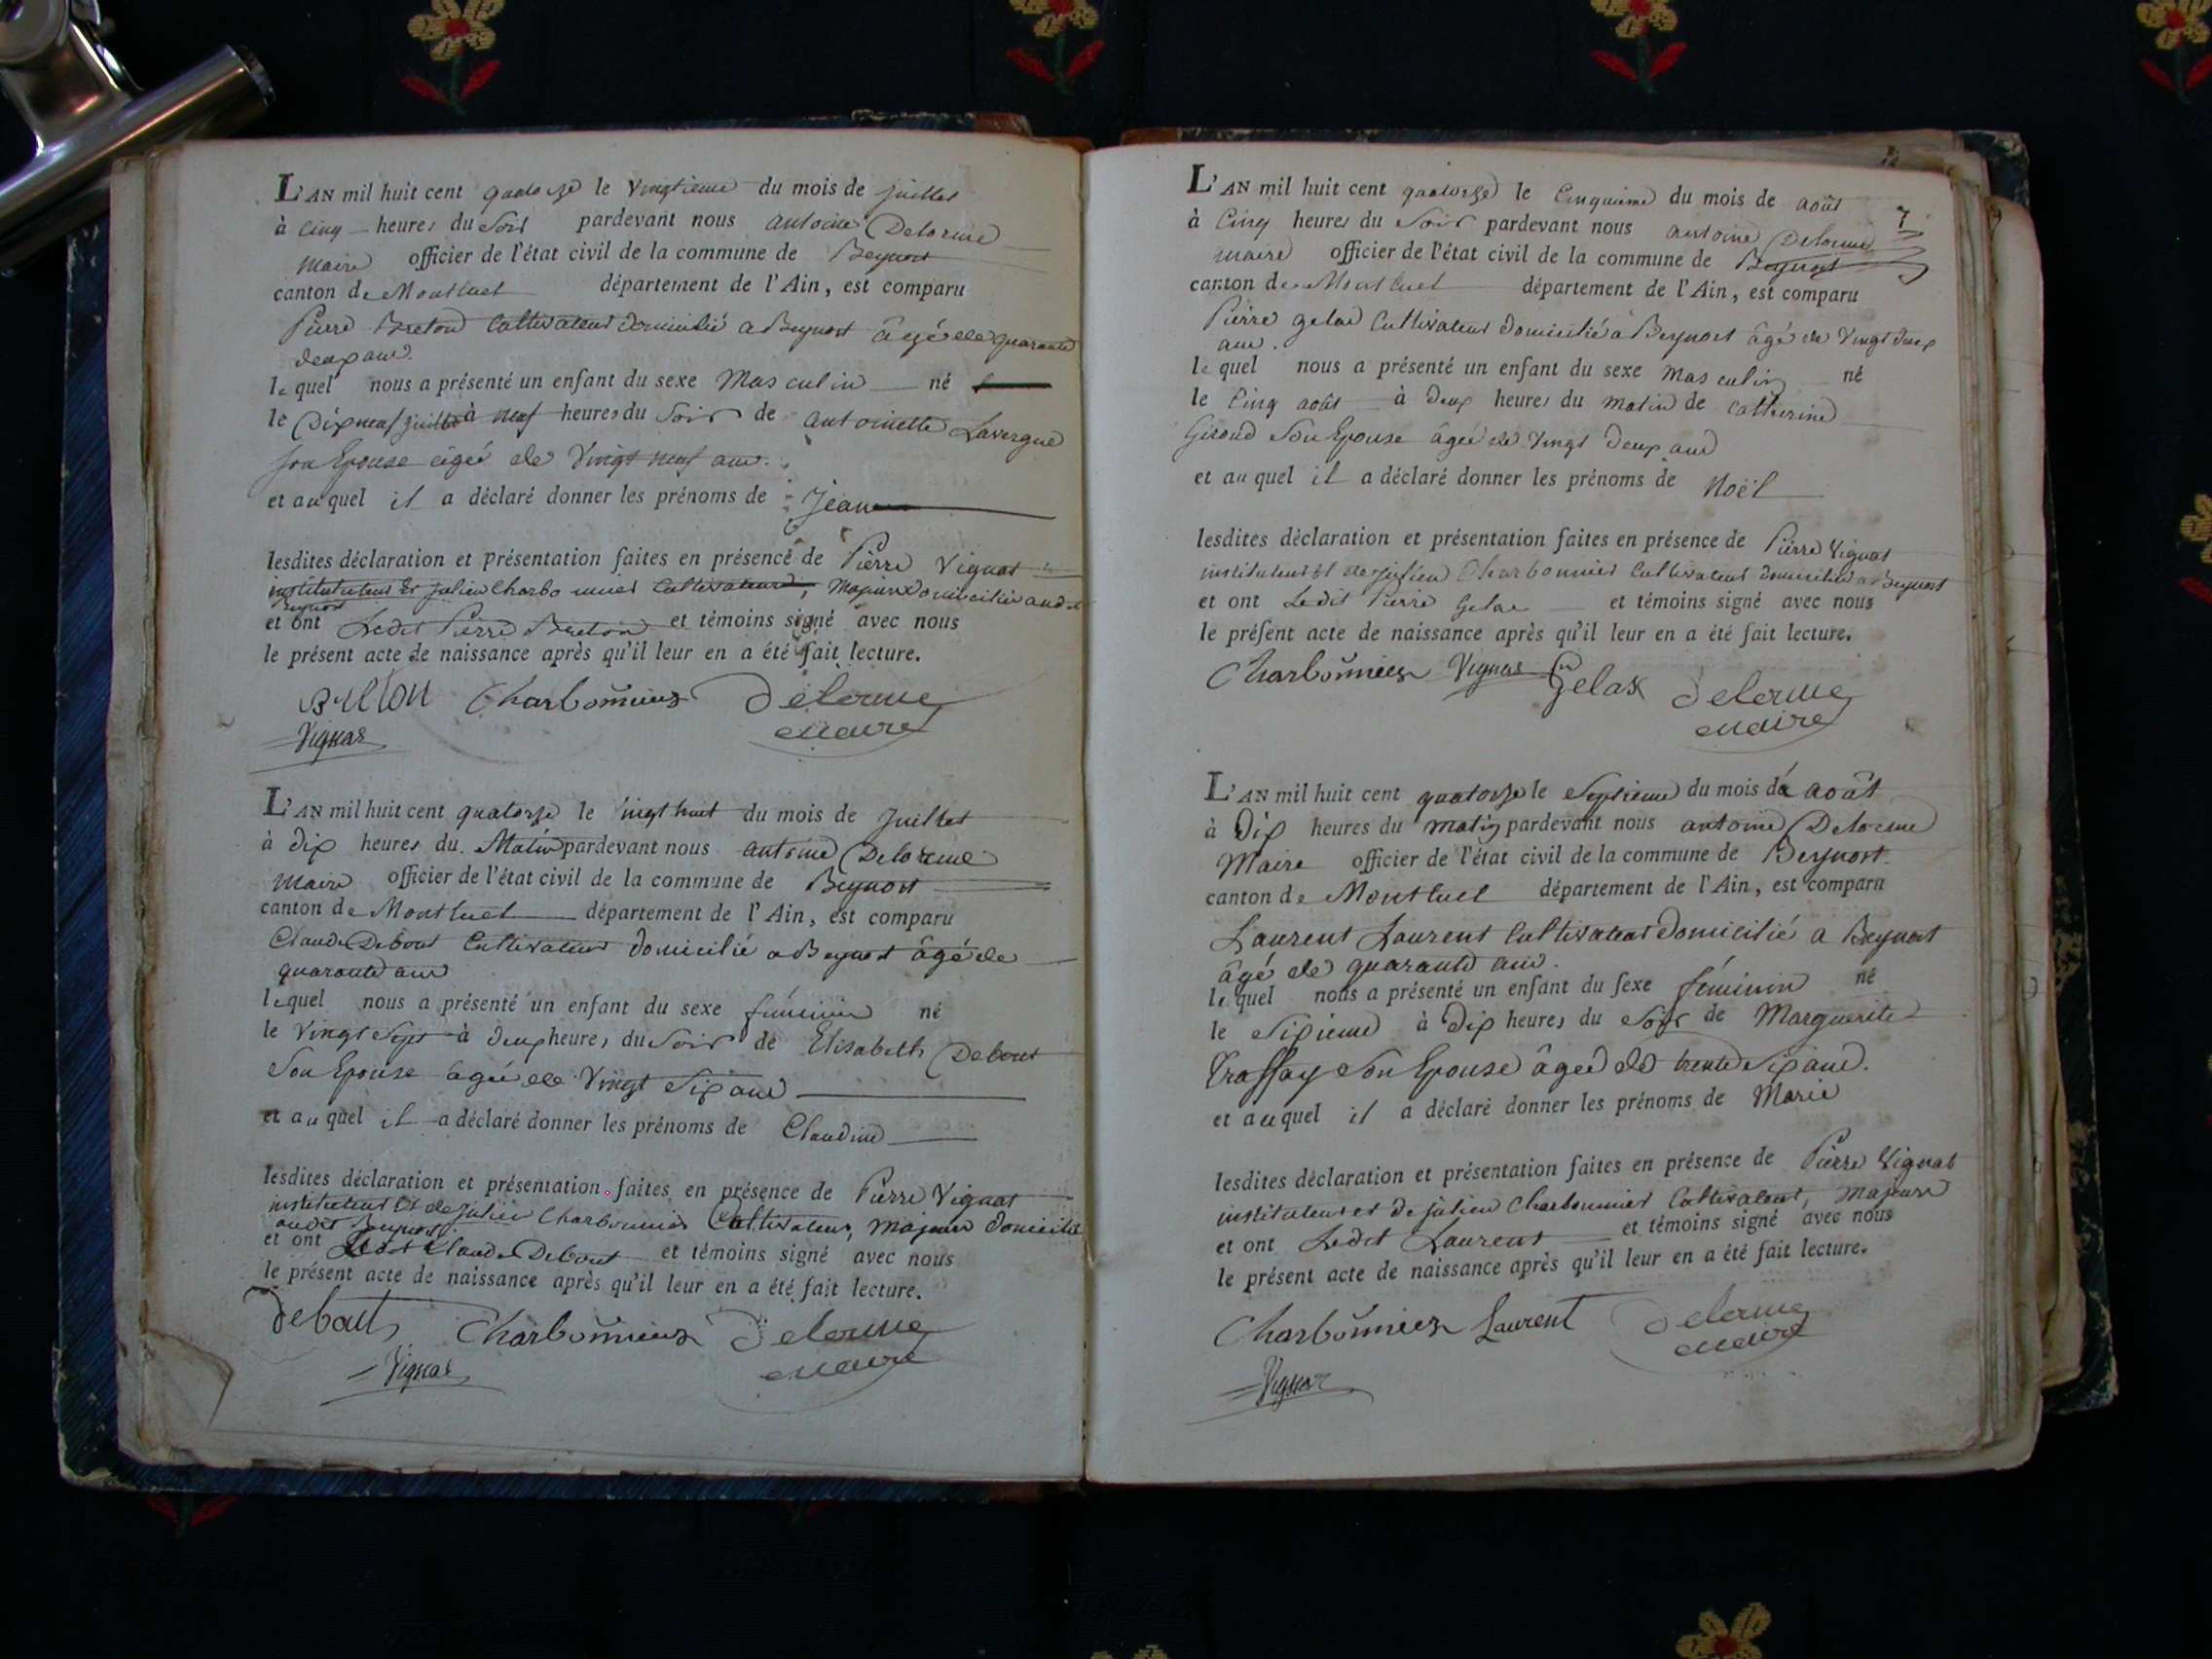 L'AN mil huit cent quatorze le vingtieme du mois de juillet
à cinq heures du soir pardevant nous antoine Delorme
maire officier de l'état civil de la commune de Beynost
canton de Montluel département de l'Ain, est comparu
Pierre Breton Cultivateur domicilié a Beynost âgé de quarante
deux ans.
lequel nous a présenté un enfant du sexe Masculin né
le Dixneuf juillet à neuf heures du soir de antoinette Lavergne
son Epouse âgée de Vingt neuf ans.
et auquel il a déclaré donner les prénoms de Jean
lesdites déclaration et présentation faites en présence de Pierre Vignat
instituteur Et julien Charbonnier Cultivateur, Majeurs domiciliés audit
Beynost
et ont Ledit Pierre Breton et témoins signé avec nous
le présent acte de naissance après qu'il leur en a été fait lecture.
Breton Charbonnier Delorme
Vignat maire
L'AN mil huit cent quatorze le vingt huit du mois de Juillet
à dix heures du Matin pardevant nous antoine Delorme
maire officier de l'état civil de la commune de Beynost
canton de Montluel département de l'Ain, est comparu
Claude Debout Cultivateur domicilié a Beynost âgé de
quarante ans
lequel nous a présenté un enfant du sexe féminin né
le Vingt Sept à deux heures du Soir de Elisabeth Debout
Son Epouse âgée de Vingt Six ans
et auquel il a déclaré donner les prénoms de Claudine
lesdites déclaration et présentation faites en présence de Pierre Vignat
instituteur Et de Julien Charbonnier Cultivateur, majeurs domicilié
audit Beynost
et ont Ledit Claude Debout et témoins signé avec nous
le présent acte de naissance après qu'il leur en a été fait lecture.
debout Charbonnier Delorme
Vignat maire
7
L'AN mil huit cent quatorze le Cinquieme du mois de août
à Cinq heures du Soir pardevant nous antoine Delorme
maire officier de l'état civil de la commune de Beynost
canton de Montluel département de l'Ain, est comparu
Pierre gelas Cultivateur domicilié à Beynost âgé de Vingt deux
ans.
lequel nous a présenté un enfant du sexe masculin né
le Cinq août à deux heures du matin de catherine
Giroud Son Epouse âgée de Vingt deux ans
et auquel il a déclaré donner les prénoms de Noël
lesdites déclaration et présentation faites en présence de Pierre Vignat
instituteur Et de julien Charbonnier Cultivateur domiciliés a Beynost
et ont Ledit Pierre Gelas et témoins signé avec nous
le présent acte de naissance après qu'il leur en a été fait lecture.
Charbonnier Vignat Gelas Delorme
maire
L'AN mil huit cent quatorze le Septieme du mois de août
à Dix heures du matin pardevant nous antoine Delorme
Maire officier de l'état civil de la commune de Beynost
canton de Montluel département de l'Ain, est comparu
Laurent Laurent Cultivateur domicilié a Beynost
âgé de quarante ans.
lequel nous a présenté un enfant du sexe féminin né
le Sixieme à Dix heures du Soir de Marguerite
son Epouse âgée de trente Six ans.
et auquel il a déclaré donner les prénoms de Marie
lesdites déclaration et présentation faites en présence de Pierre Vignat
instituteur et de julien Charbonnier Cultivateur, majeurs
et ont Ledit Laurent et témoins signé avec nous
le présent acte de naissance après qu'il leur en a été fait lecture.
Charbonnier Laurent Delorme
maire
Vignat